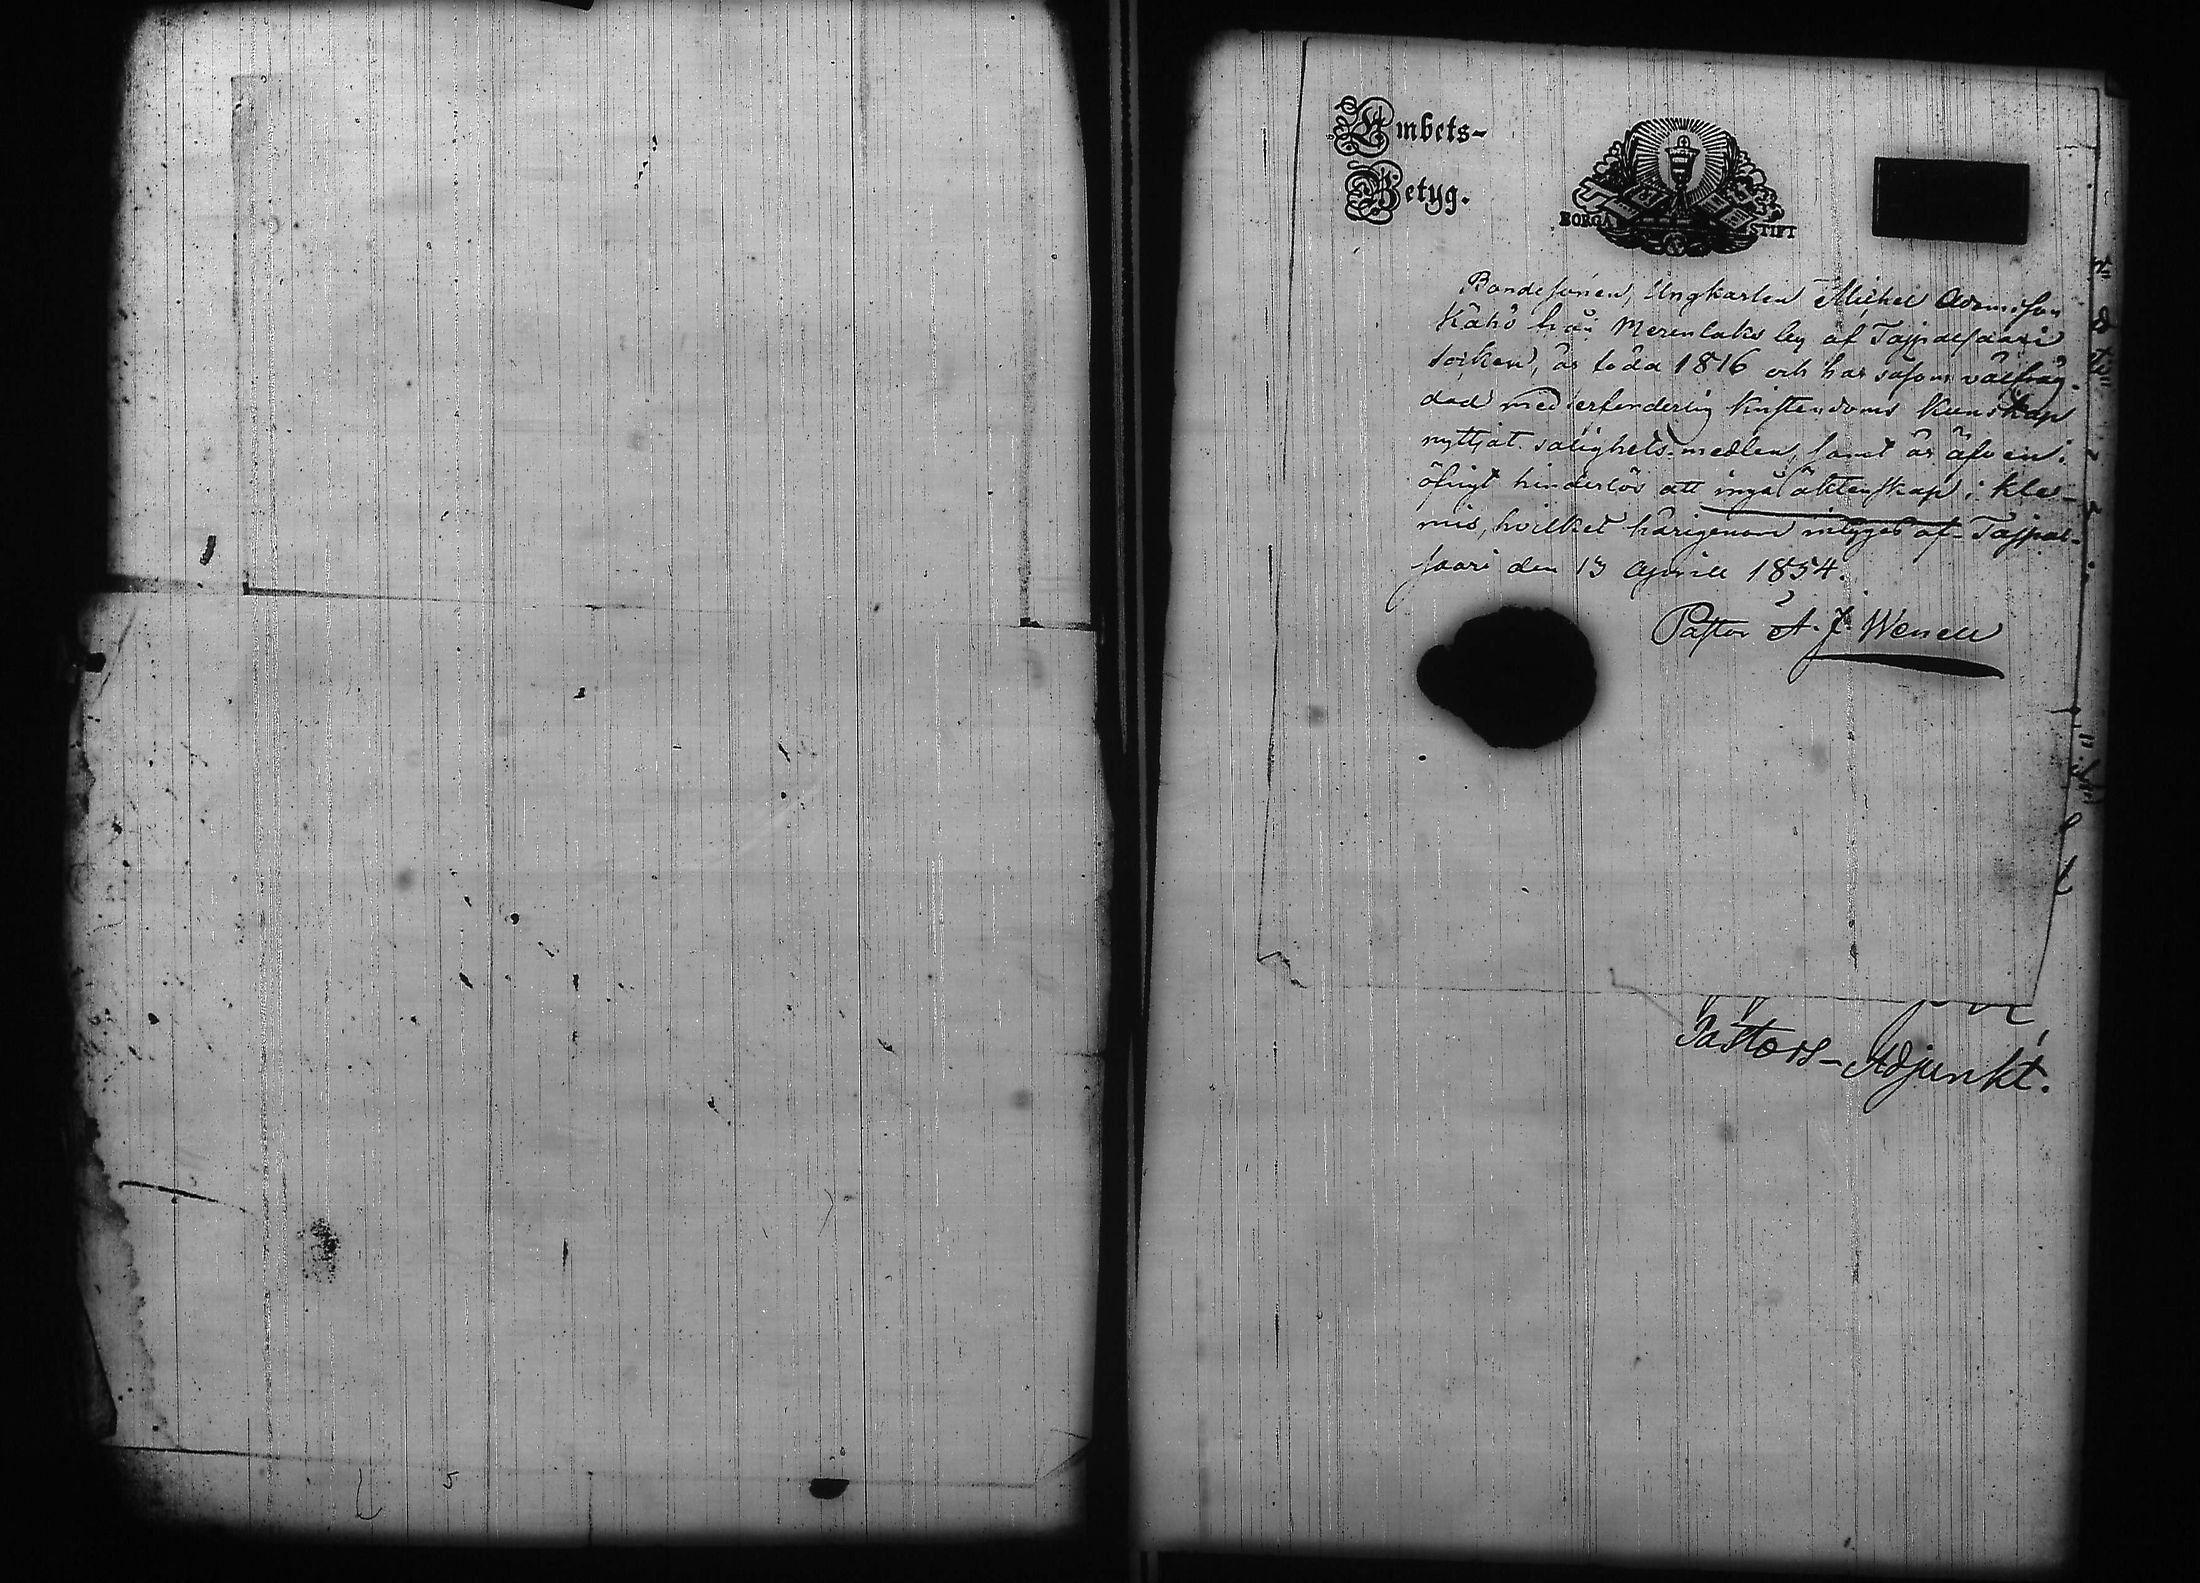 Embets-
Betyg.
BORGÅ STIFT
Bondesonen, Ungkarlen Michel Adamsson
Kähö från Merenlaks by af Taipalsaari
socken, är född 1816 och har såsom välfräg-
dad med erforderlig kristendoms kunskap
nyttjat salighets-medlen, samt är äfven i
öfrigt hinderlös att ingå äktenskap i Kle-
mis, hvilket härigenom intygas af Taipal-
saari den 13 Aprill 1854.
Pastor A. J. Wenell
Pastors-Adjunkt.